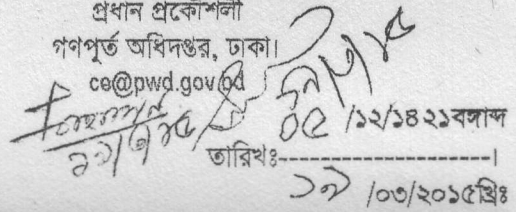 প্রধান প্রকৌশলী
গণপূর্ত অধিদপ্তর, ঢাকা।
ce@pwd.gov.bd
১৯/৩/১৫
০৫/১২/১৪২১বঙ্গাব্দ
তারিখঃ----------------------।
১৯/০৩/২০১৫খ্রিঃ